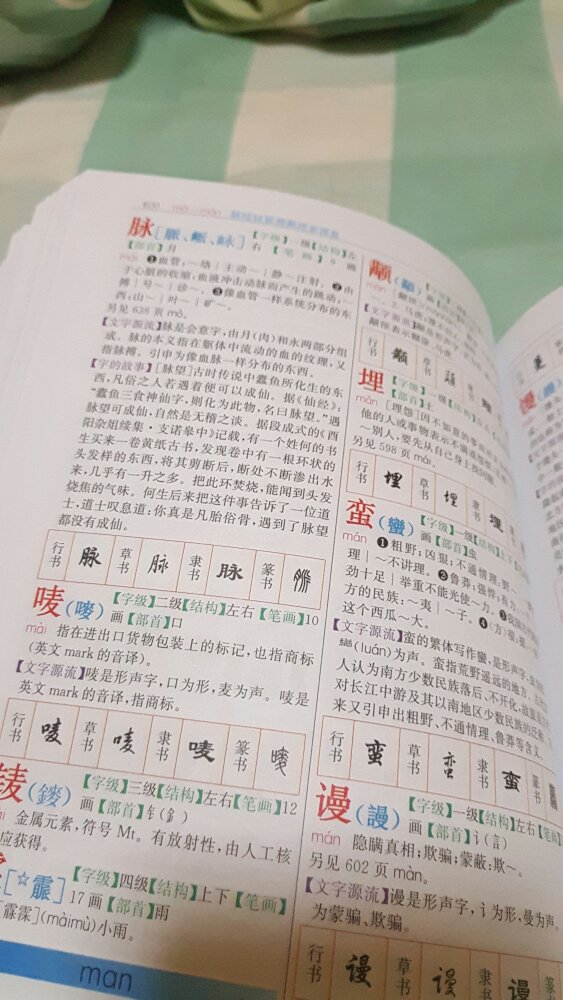 600 mài—mán
脉[脈、衇、䘑]【字级】一级【结构】左
右【笔画】9画
【部首】月
mài ❶血管:~络|主动~|静~注射。❷由
于心脏的收缩,血液冲击动脉而产生的跳动:~
搏|号~|诊~。❸像血管一样系统分布的东
西:山~|叶~|矿~。
另见 636 页 mò。
【文字源流】脉是会意字,由月(肉)和永两部分组
成。脉的本义指在躯体中流动的血的纹理,又
指脉搏。引申为像血脉一样分布的东西。
【字的故事】[脉望]古时传说中蠹鱼所化生的东
西,凡俗之人若遇着便可以成仙。据《仙经》:
“蠹鱼三食神仙字,则化为此物,名曰脉望。”遇
脉望可成仙,自然是无稽之谈。据段成式的《酉
阳杂俎续集·支诺皋中》记载,有一个姓何的书
生买来一卷黄纸古书,发现卷中有一根环状的
头发样的东西,将其剪断后,断处不断渗出水
来,几乎有一升之多。把此环焚烧,能闻到头发
烧焦的气味。何生后来把这件事告诉了一位道
士,道士叹息道:你真是凡胎俗骨,遇到了脉望
都没有成仙。
行书 脉 草书 脉 隶书 脉 篆书
唛(嘜)【字级】二级【结构】左右【笔画】10
画【部首】口
mài 指在进出口货物包装上的标记,也指商标
(英文 mark 的音译)。
【文字源流】唛是形声字,口为形,麦为声。唛是
英文 mark 的音译,指商标。
行书 唛 草书 唛 隶书 唛 篆书 唛
(鿏)【字级】三级【结构】左右【笔画】12
画【部首】钅(釒)
金属元素,符号 Mt。有放射性,由人工核
应获得。
[☆霢]【字级】四级【结构】上下【笔画】
17 画【部首】雨
[霡霂](màimù)小雨。
man
颟(顢)
行书 颟 草书 颟 隶书
埋【字级】一级
【部首】土
mán [埋怨]因不如意的事
他的人或事物表示不满
~别人,要先从自己身上找问题。
另见 598 页 mái。
行书 埋 草书 埋 隶书 埋
蛮(蠻)【字级】一级【结构】上下
画【部首】虫
mán ❶粗野;凶狠;不通情理:野~
理|~不讲理。❷鲁莽;强悍:
劲十足|举重不能光使~力。
方的民族:~夷|~子。❹(方)很;
这个西瓜~大。
【文字源流】蛮的繁体写作蠻,是形声字,
䜌(luán)为声。蛮指荒野遥远的地方。
人认为南方少数民族落后、不开化,故
对长江中游及其以南地区少数民族的泛称。
来又引申出粗野、不通情理、鲁莽等含义。
行书 蛮 草书 蛮 隶书 蛮
谩(謾)【字级】一级【结构】左右【笔画】
画【部首】讠(言)
mán 隐瞒真相;欺骗;蒙蔽:欺~。
另见 602 页 màn。
【文字源流】谩是形声字,讠为形,曼为声。
为蒙骗、欺骗。
行书 谩 草书 谩 隶书 谩